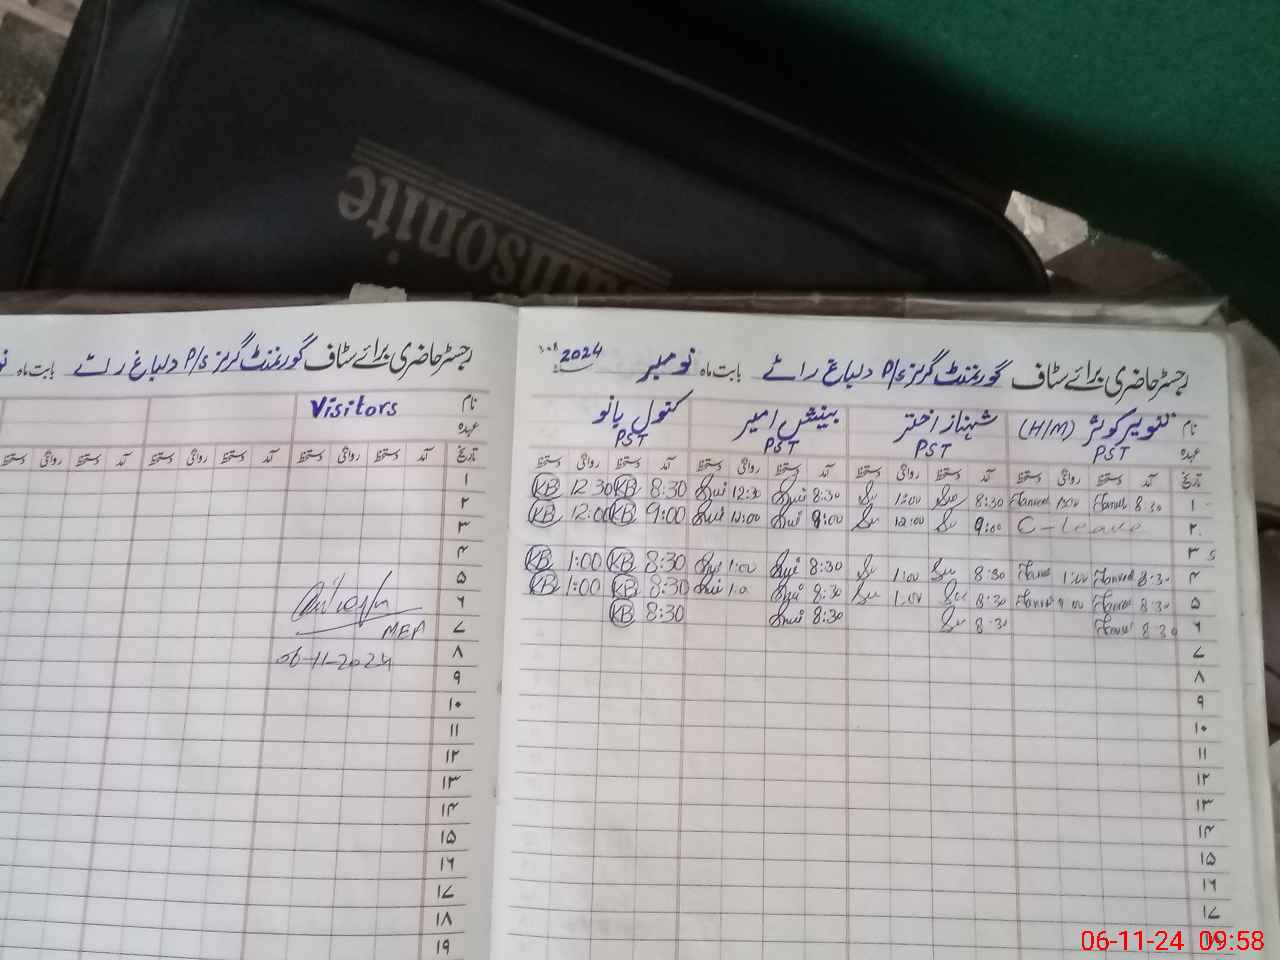 Samsonite
رجسٹر حاضری برائے سٹاف گورنمنٹ گرلز P/s دلباغ رائے بابت ماہ نومبر 2024
نام تنویر کوثر (H/M) شہناز اختر بینش امیر کنول بانو
عہدہ PST PST PST PST
تاریخ آمد دستخط روانگی دستخط آمد دستخط روانگی دستخط آمد دستخط روانگی دستخط آمد دستخط روانگی دستخط
۱ 8:30 1:00 8:30 1:00 8:30 12:30 8:30 KB 12:30 KB
۲ C-leave 9:00 12:00 9:00 12:00 9:00 KB 12:00 KB
۳
۴ 8:30 1:00 8:30 1:00 8:30 1:00 8:30 KB 1:00 KB
۵ 8:30 1:00 8:30 1:00 8:30 1:0 8:30 KB 1:00 KB
۶ 8:30 8:30 8:30 8:30 KB
۷
۸
۹
۱۰
۱۱
۱۲
۱۳
۱۴
۱۵
۱۶
۱۷
۱۸
رجسٹر حاضری برائے سٹاف گورنمنٹ گرلز P/s دلباغ رائے بابت ماہ
نام Visitors
عہدہ
تاریخ آمد دستخط روانگی دستخط آمد دستخط روانگی دستخط آمد دستخط روانگی دستخط
۱
۲
۳
۴
۵
۶
۷
۸ 06-11-2024
۹
۱۰
۱۱
۱۲
۱۳
۱۴
۱۵
۱۶
۱۷
۱۸
۱۹
06-11-24 09:58